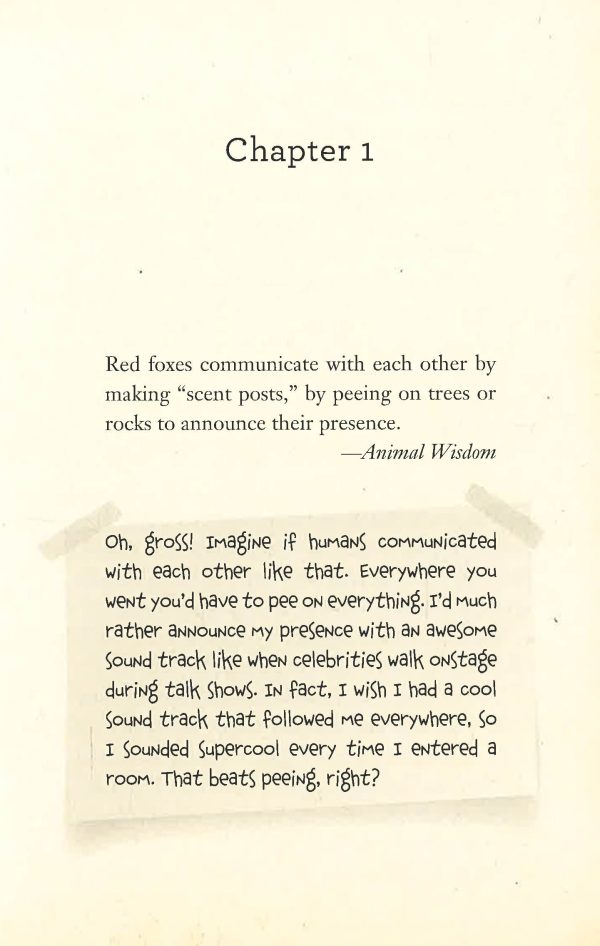 Chapter 1
Red foxes communicate with each other by
making “scent posts,” by peeing on trees or
rocks to announce their presence.
—Animal Wisdom
Oh, gross! Imagine if humans communicated
with each other like that. Everywhere you
went you’d have to pee on everything. I’d much
rather announce my presence with an awesome
sound track like when celebrities walk onstage
during talk shows. In fact, I wish I had a cool
sound track that followed me everywhere, so
I sounded supercool every time I entered a
room. That beats peeing, right?